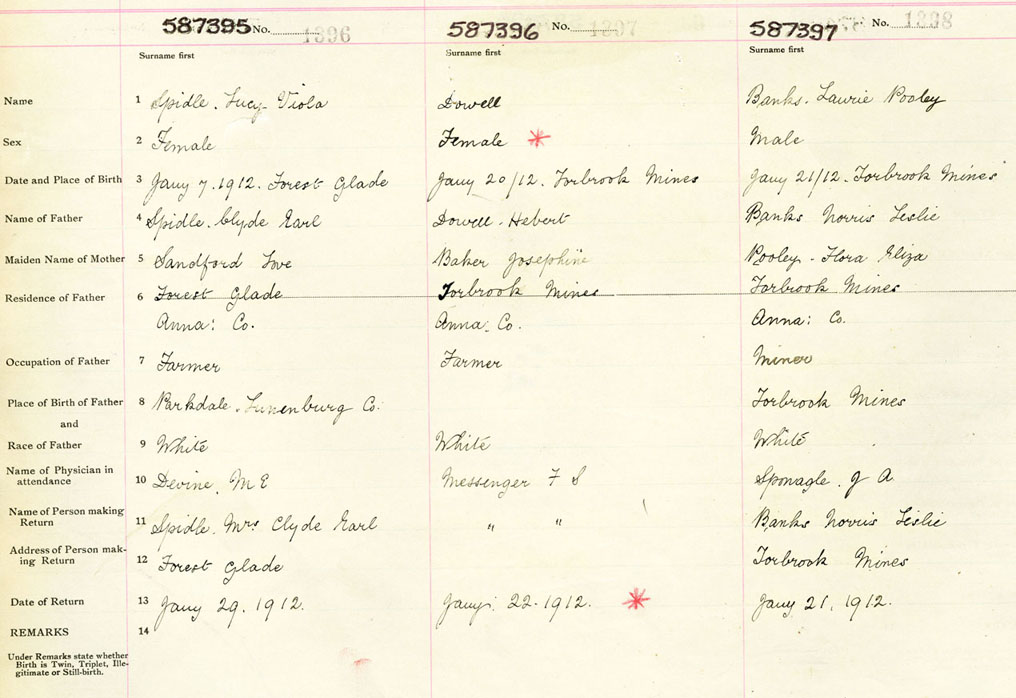 587395 No. 1396 587396 No. 1397 587397 No. 1398
Surname first Surname first Surname first
Name 1 Spidle. Lucy Viola Dowell Banks. Laurie Pooley
Sex 2 Female Female * Male
Date and Place of Birth 3 Jany 7. 1912. Forest Glade Jany 20/12. Torbrook Mines Jany 21/12. Torbrook Mines
Name of Father 4 Spidle. Clyde Earl Dowell - Hebert Banks Norris Leslie
Maiden Name of Mother 5 Sandford Love Baker Josephine Pooley - Flora Eliza
Residence of Father 6 Forest Glade Torbrook Mines Torbrook Mines
Anna: Co. Anna: Co. Anna: Co.
Occupation of Father 7 Farmer Farmer Miner
Place of Birth of Father 8 Parkdale. Lunenburg Co: Torbrook Mines
and
Race of Father 9 White White White
Name of Physician in
attendance 10 Devine, M E Messenger F S Sponagle. J A
Name of Person making
Return 11 Spidle. Mrs Clyde Earl " " Banks Norris Leslie
Address of Person mak-
ing Return 12 Forest Glade Torbrook Mines
Date of Return 13 Jany 29. 1912. Jany: 22. 1912. * Jany 21, 1912.
REMARKS 14
Under Remarks state whether
Birth is Twin, Triplet, Ille-
gitimate or Still-birth.